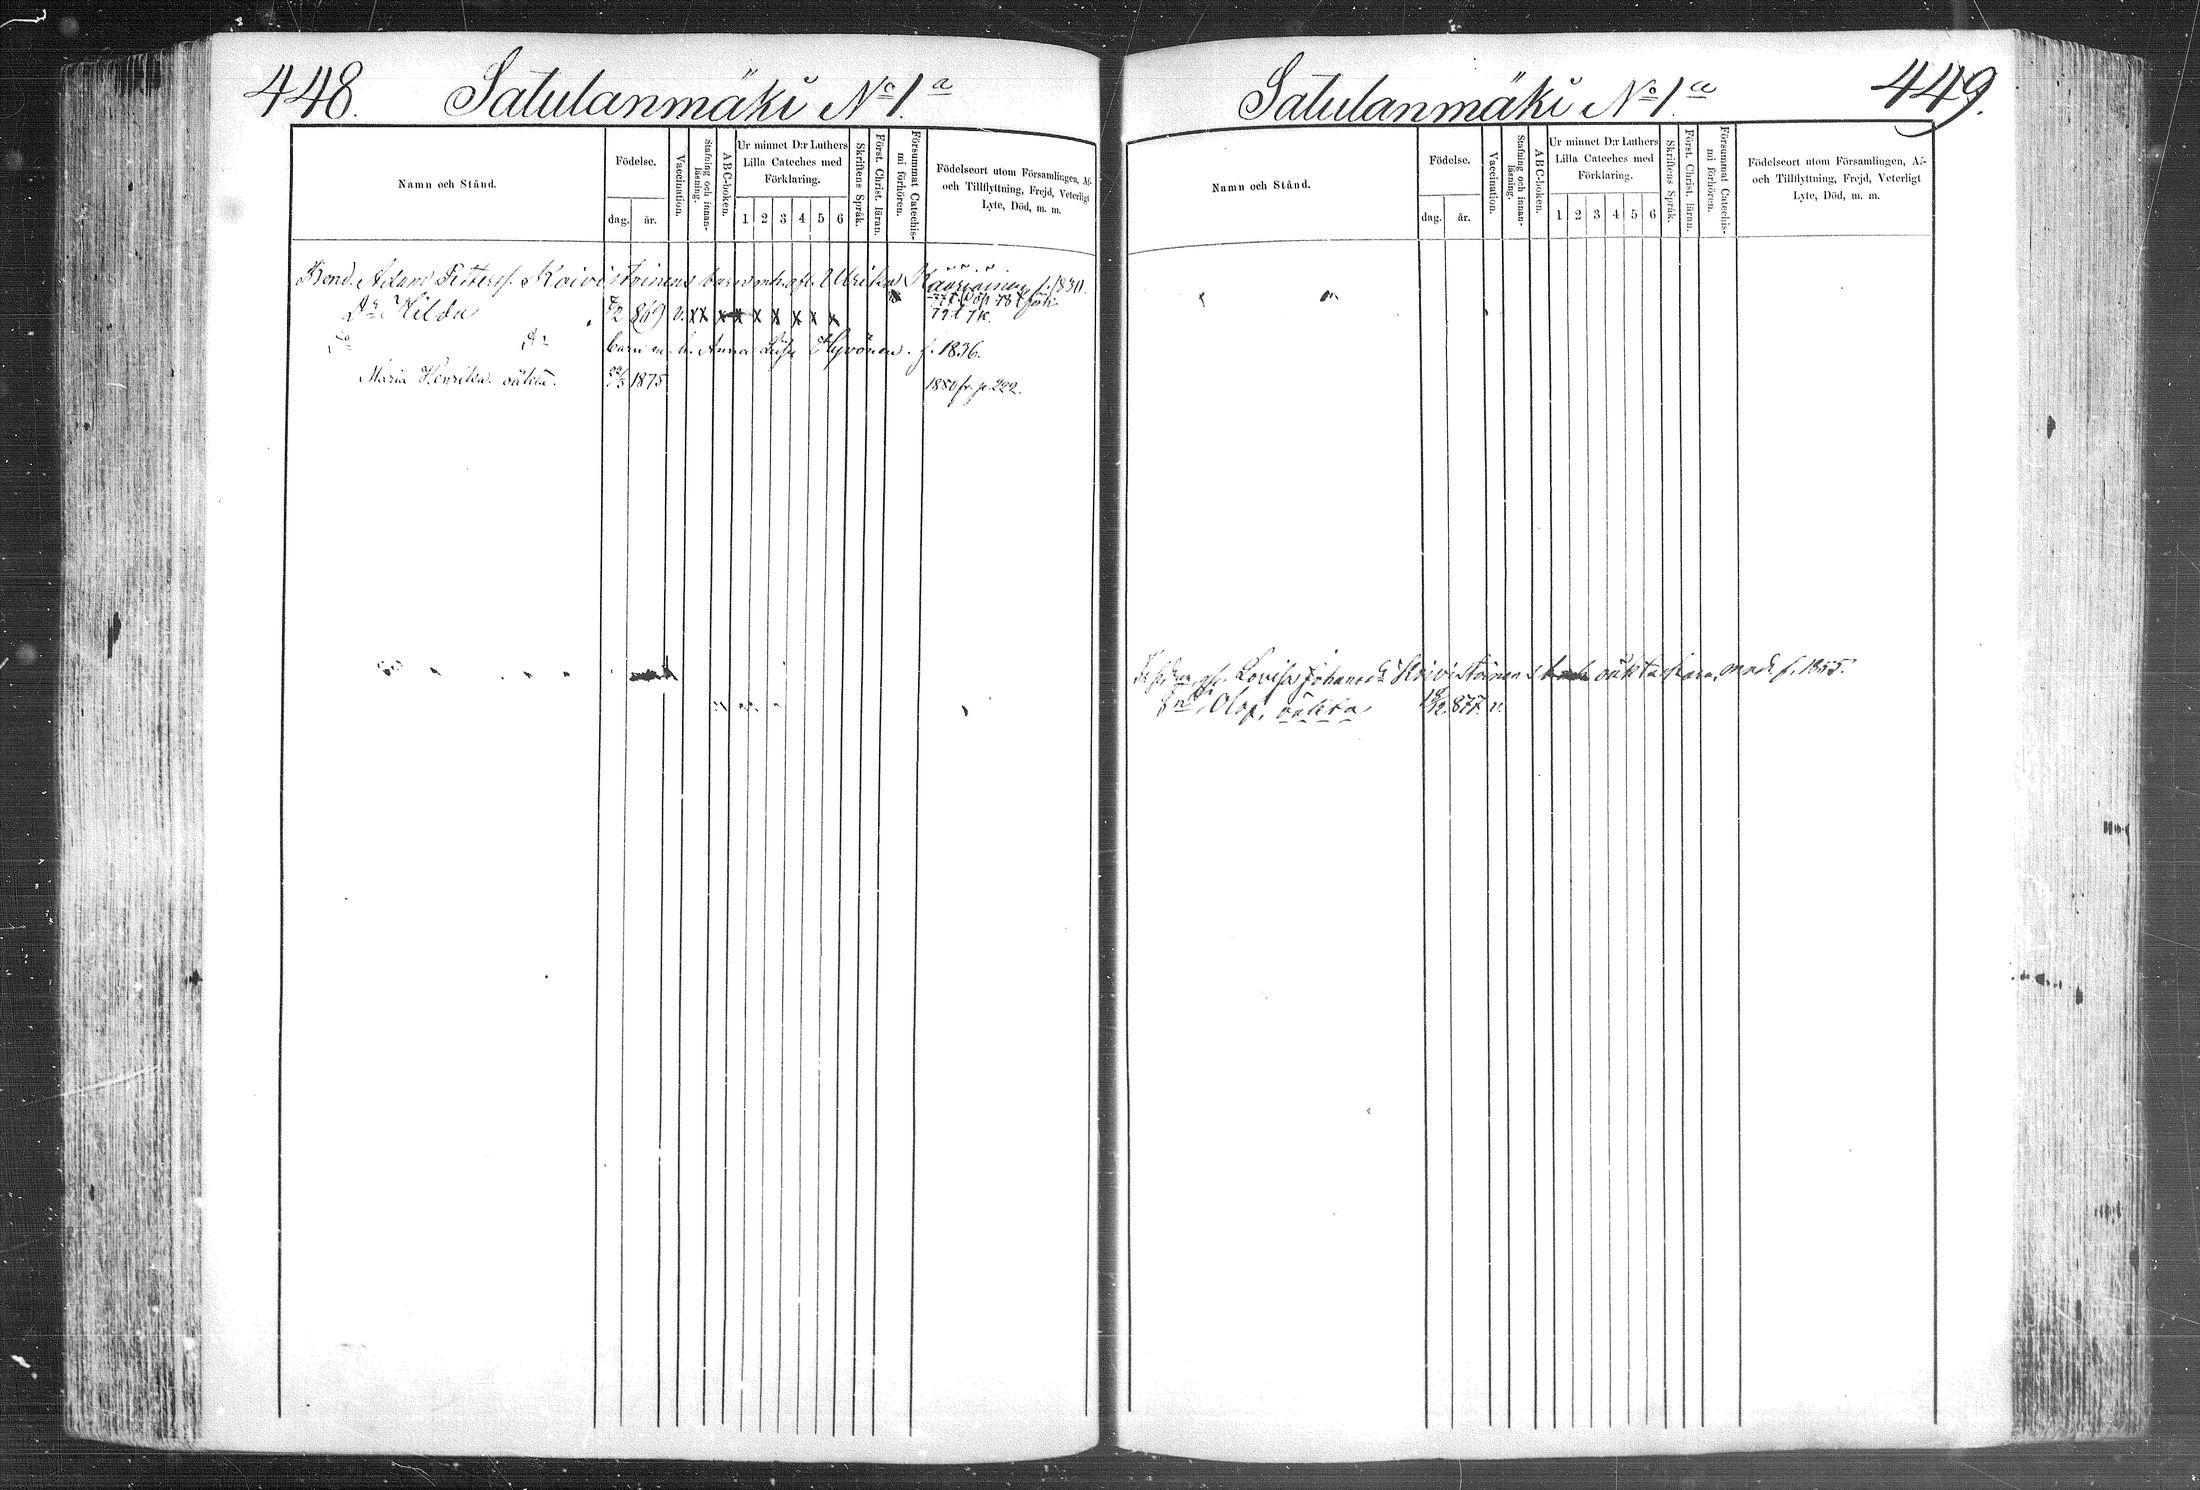 448. Satulanmäki No 1. a
Namn och Stånd.
Födelse.
dag.
år.
Vaccination.
Stafning och innanläsning.
ABC-boken.
Ur minnet D:r Luthers Lilla Cateches med Förklaring.
1 2 3 4 5 6
Skriftens Språk.
Först. Christ. läran.
Försummat Catechismi förhören.
Födelseort utom Församlingen, Af- och Tillflyttning, Frejd, Veterligt Lyte, Död, m. m.
Bond. Adam Pettersf. Koivistoinens barn m. h. afl. Ulrika f. 1830.
Dr Hilda 869 v. x x x x x x x x x
Dr barn m. h. Anna Hyvönen. f. 1836.
Maria Henrika oäkta. 22/3 1875 1880 fr. p. 222.
Satulanmäki No 1. a 449.
Namn och Stånd.
Födelse.
dag.
år.
Vaccination.
Stafning och innanläsning.
ABC-boken.
Ur minnet D:r Luthers Lilla Cateches med Förklaring.
1 2 3 4 5 6
Skriftens Språk.
Först. Christ. läran.
Försummat Catechismi förhören.
Födelseort utom Församlingen, Af- och Tillflyttning, Frejd, Veterligt Lyte, Död, m. m.
Lovisa Johansd:r Koivistoinens oäkta f. 1855.
Olof, oäkta 877. v.